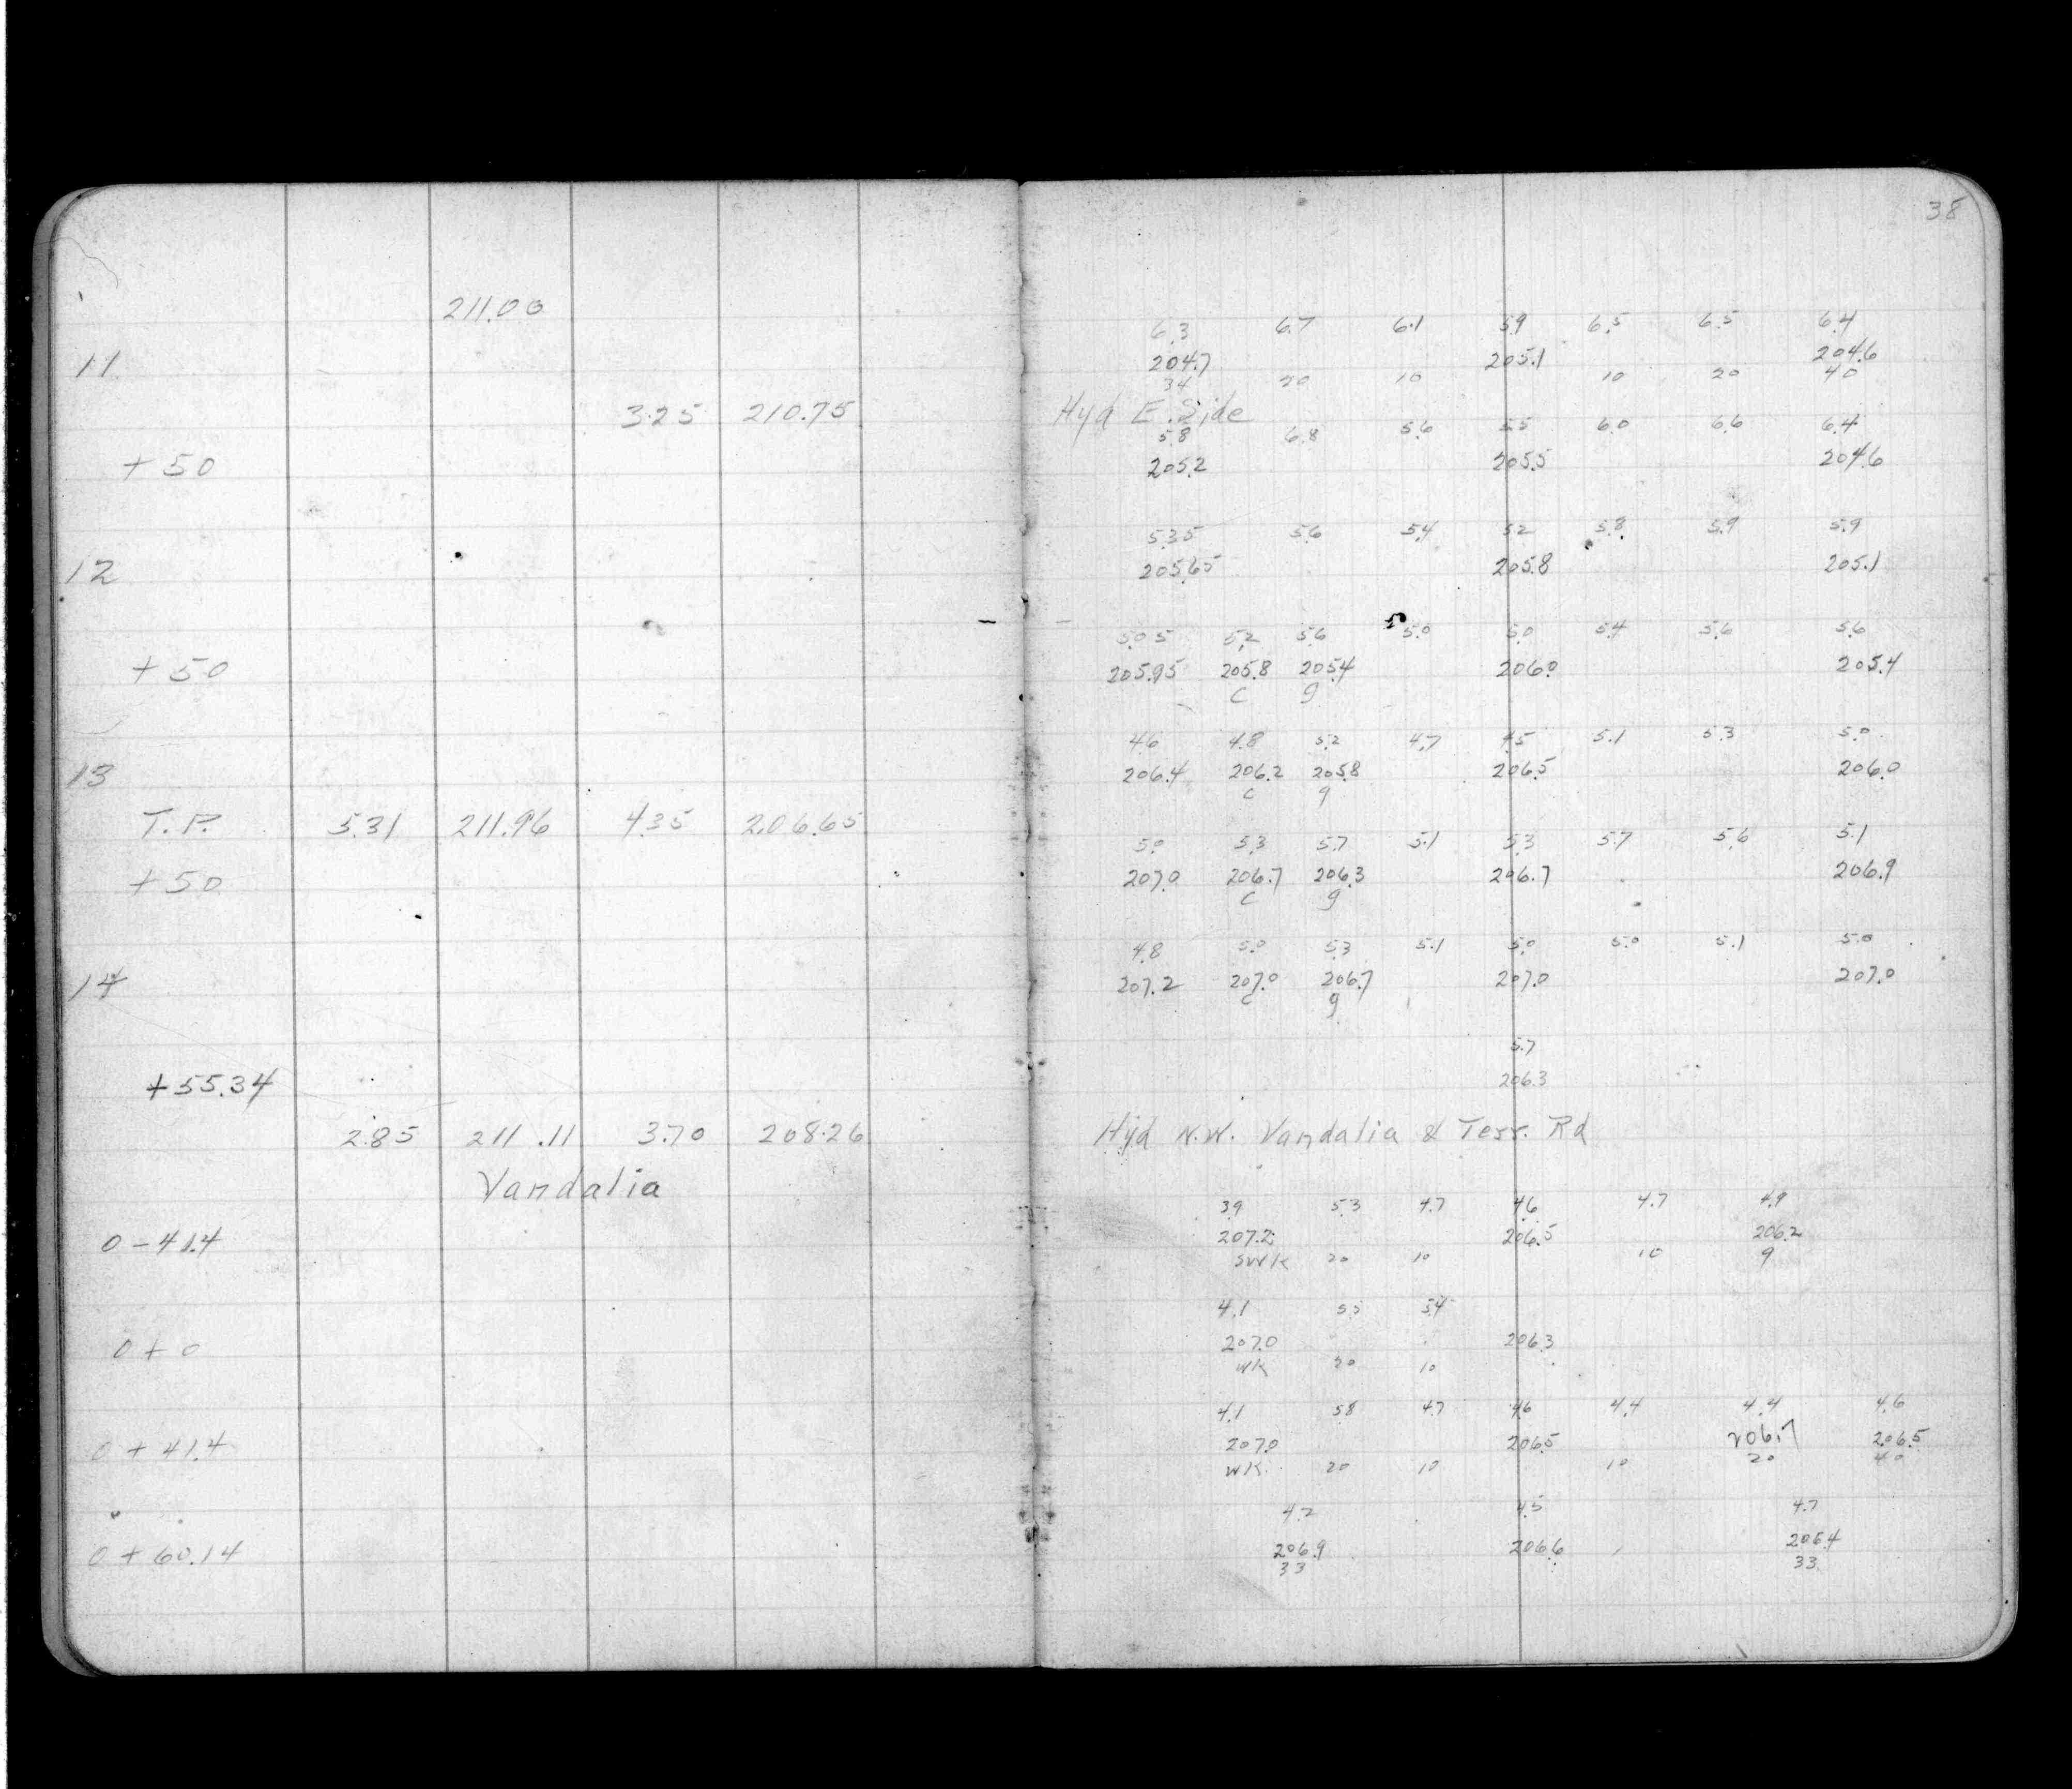 38
211.00
11
3.25 210.75
+50
12
+50
13
T.P. 5.31 211.96 4.35 206.65
+50
14
+55.34
2.85 211.11 3.70 208.26
Vandalia
0-41.4
0+0
0+41.4
0+60.14
6.3 6.7 6.1 5.9 6.5 6.5 6.4
204.7 205.1 204.6
34 20 10 10 20 40
Hyd E. Side
5.8 6.8 5.6 5.5 6.0 6.6 6.4
205.2 205.5 204.6
5.35 5.6 5.4 5.2 5.8 5.9 5.9
205.65 205.8 205.1
5.05 5.2 5.6 5.0 5.0 5.4 5.6 5.6
205.95 205.8 205.4 206.0 205.4
C g
4.6 4.8 5.2 4.7 4.5 5.1 5.3 5.0
206.4 206.2 205.8 206.5 206.0
C g
5.0 5.3 5.7 5.1 5.3 5.7 5.6 5.1
207.0 206.7 206.3 206.7 206.9
C g
4.8 5.0 5.3 5.1 5.0 5.0 5.1 5.0
207.2 207.0 206.7 207.0 207.0
C g
5.7
206.3
Hyd N.W. Vandalia & Terr. Rd
3.9 5.3 4.7 4.6 4.7 4.9
207.2 206.5 206.2
SWK 20 10 10 g
4.1 5.5 5.4
207.0 206.3
WK 20 10
4.1 5.8 4.7 4.6 4.4 4.4 4.6
207.0 206.5 206.7 206.5
WK 20 10 10 20 40
4.2 4.5 4.7
206.9 206.6 206.4
33 33